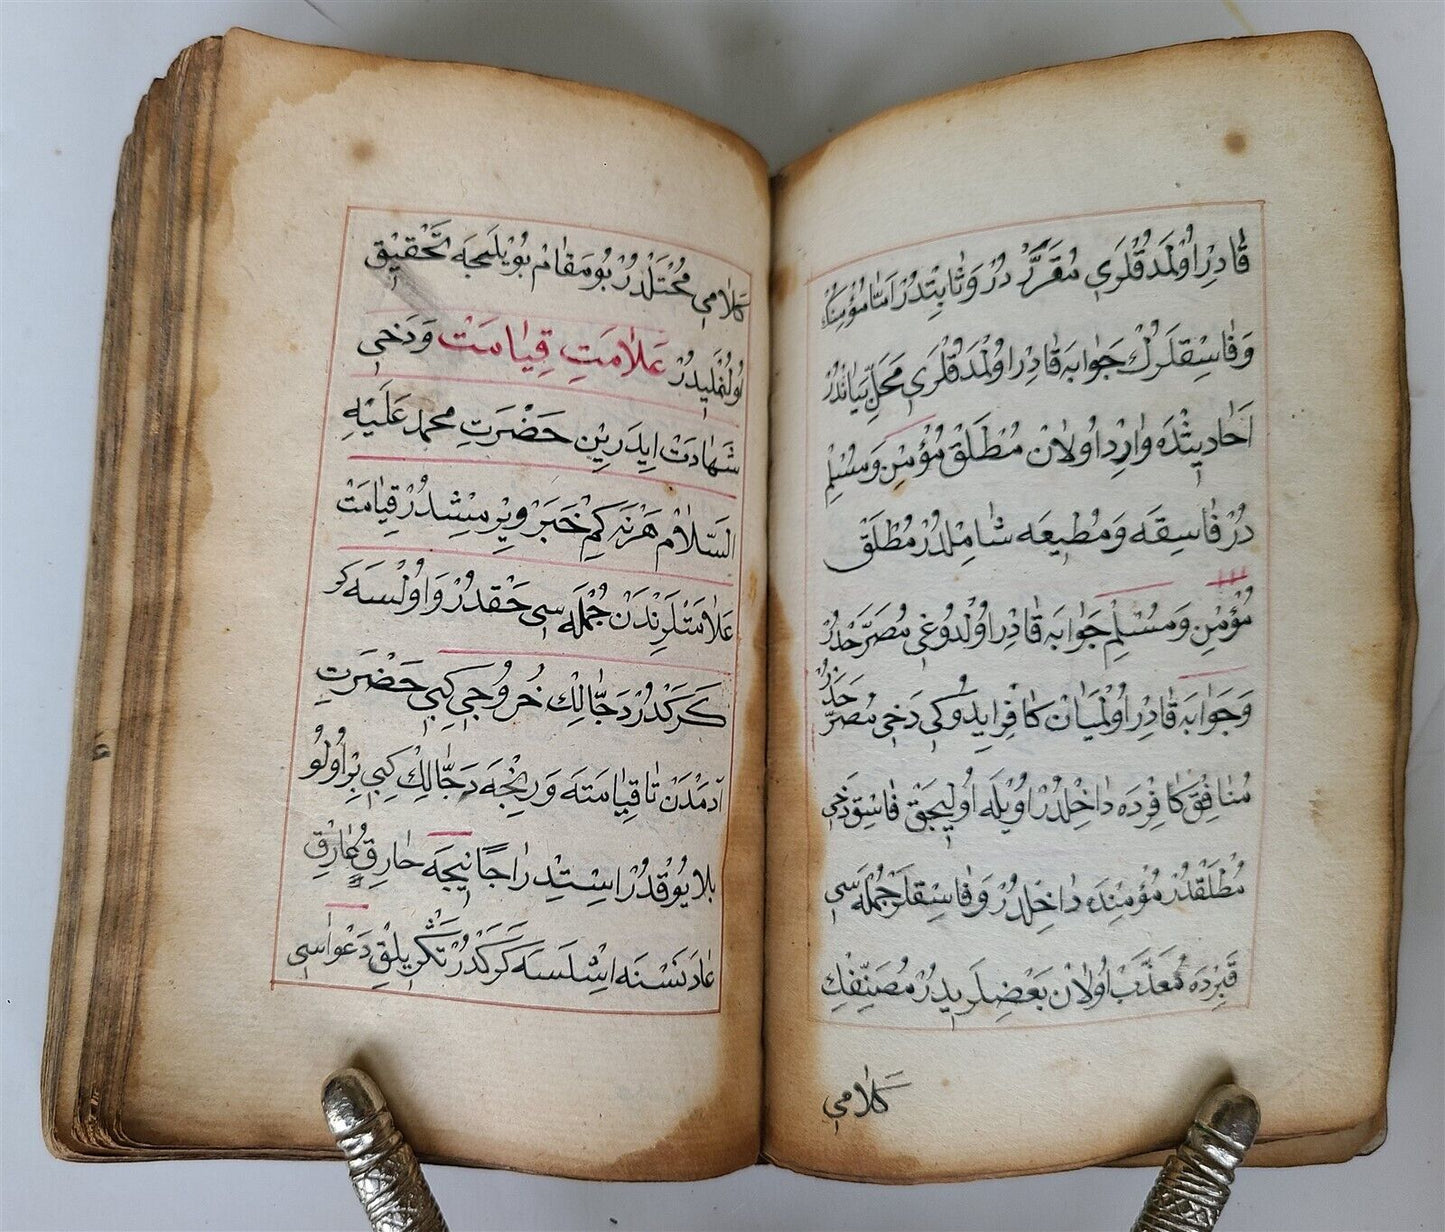 قَادِر اُولْمَدُقْلَرِي مُقَرَّرْ دُرْ وَثَابِتْدُرْ اَمَّا مُؤْمِنْ
وَفَاسِقْلَرِكْ جَوَابَه قَادِر اُولْمَدُقْلَرِي مَحَلِّ بَيَانْدُرْ
اَحَادِيثْدَه وَارِد اُولَانْ مُطْلَقْ مُؤْمِنْ وَمُسْلِمْ
دُرْ فَاسِقَه وَمُطِيعَه شَامِلْدُرْ مُطْلَقْ
مُؤْمِنْ وَمُسْلِمْ جَوَابَه قَادِر اُولْدُوغِي مُصَرَّحْدُرْ
وَجَوَابَه قَادِر اُولْمَيَانْ كَافِر اِيدُوكِي دَخِي مُصَرَّحْدُرْ
مُنَافِقْ كَافِرْدَه دَاخِلْدُرْ اُويْلَه اُولِيجَقْ فَاسِقْ دَخِي
مُطْلَقْدُرْ مُؤْمِنْدَه دَاخِلْدُرْ وَفَاسِقْلَرْ جُمْلَه سِي
قَبِرْدَه مُعَذَّبْ اُولَانْ بَعْضِلَرِيدُرْ مُصَنِّفِكْ
كَلَامِي
كَلَامِي مُحْتَلْدُرْ بُو مَقَامْ بُويْلَيجَه تَحْقِيقْ
اُولُنْمَلِيدُرْ عَلَامَتِ قِيَامَتْ وَدَخِي
شَهَادَتْ اِيدَرِيْن حَضْرَتِ محمد عَلَيْهِ
السَّلَامْ هَرْنَه كِمْ خَبَرْ وِيْرِمِيْشِدُرْ قِيَامَتْ
عَلَامَتْلَرِنْدَنْ جُمْلَه سِي حَقْدُرْ وَاُولْسَه كَرْ
كَرَكْدُرْ دَجَّالِكْ خُرُوجِي كِبِي حَضْرَتِ
آدَمْدَنْ تَا قِيَامَتَه وَرِنْجَه دَجَّالِكْ كِبِي بِرْ اُولُو
بَلَا يُوقْدُرْ اِسْتِدْرَاجًا نِيجَه خَارِقِ
عَادَتْ نَسْنَه اِشْلَسَه كَرَكْدُرْ تَكْرِيلِقْ دَعْوَاسِي